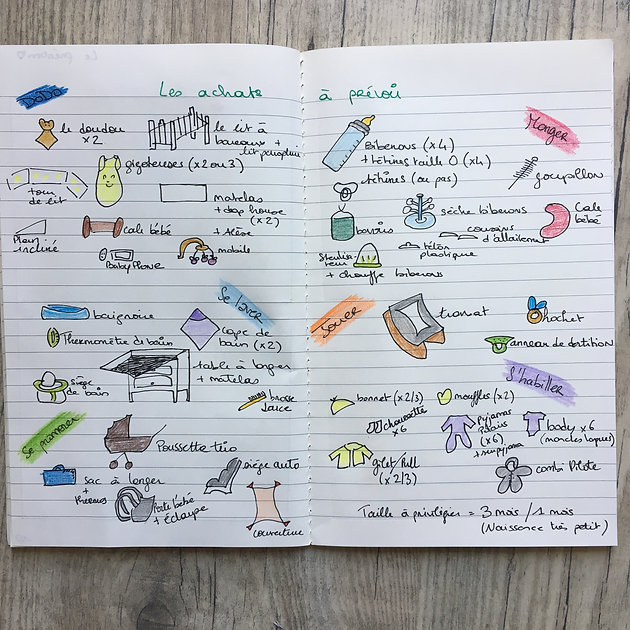 Les achats à prévoir
Dodo
le doudou
x2
le lit à
barreaux +
lit parapluie
gigoteuses (x2 ou 3)
tour
de lit
matelas
+ drap housse
(x2)
+ Alèse
Plan
incliné
cale bébé
mobile
BabyPhone
Se laver
baignoire
Thermomètre de bain
cape de
bain (x2)
table à langer
+ matelas
siège
de bain
brosse
Se promener
Poussette trio
sac à langer
+
siège auto
Porte bébé
+ Echarpe
couverture
Manger
Biberons (x4)
+ tétines taille 0 (x4)
tétines (ou pas)
goupillon
bavoirs
sèche biberons
Cale
bébé
coussins
d'allaitement
téton
plastique
Stérilisa-
teur
+ chauffe biberons
Jouer
transat
hochet
anneau de dentition
S'habiller
bonnet (x2/3)
moufles (x2)
chaussette
x6
Pyjamas
(x6)
+ surpyjama
body x6
(manches longues)
gilet/Pull
(x2/3)
combi Pilote
Taille à privilégier = 3 mois / 1 mois
(Naissance très petit)